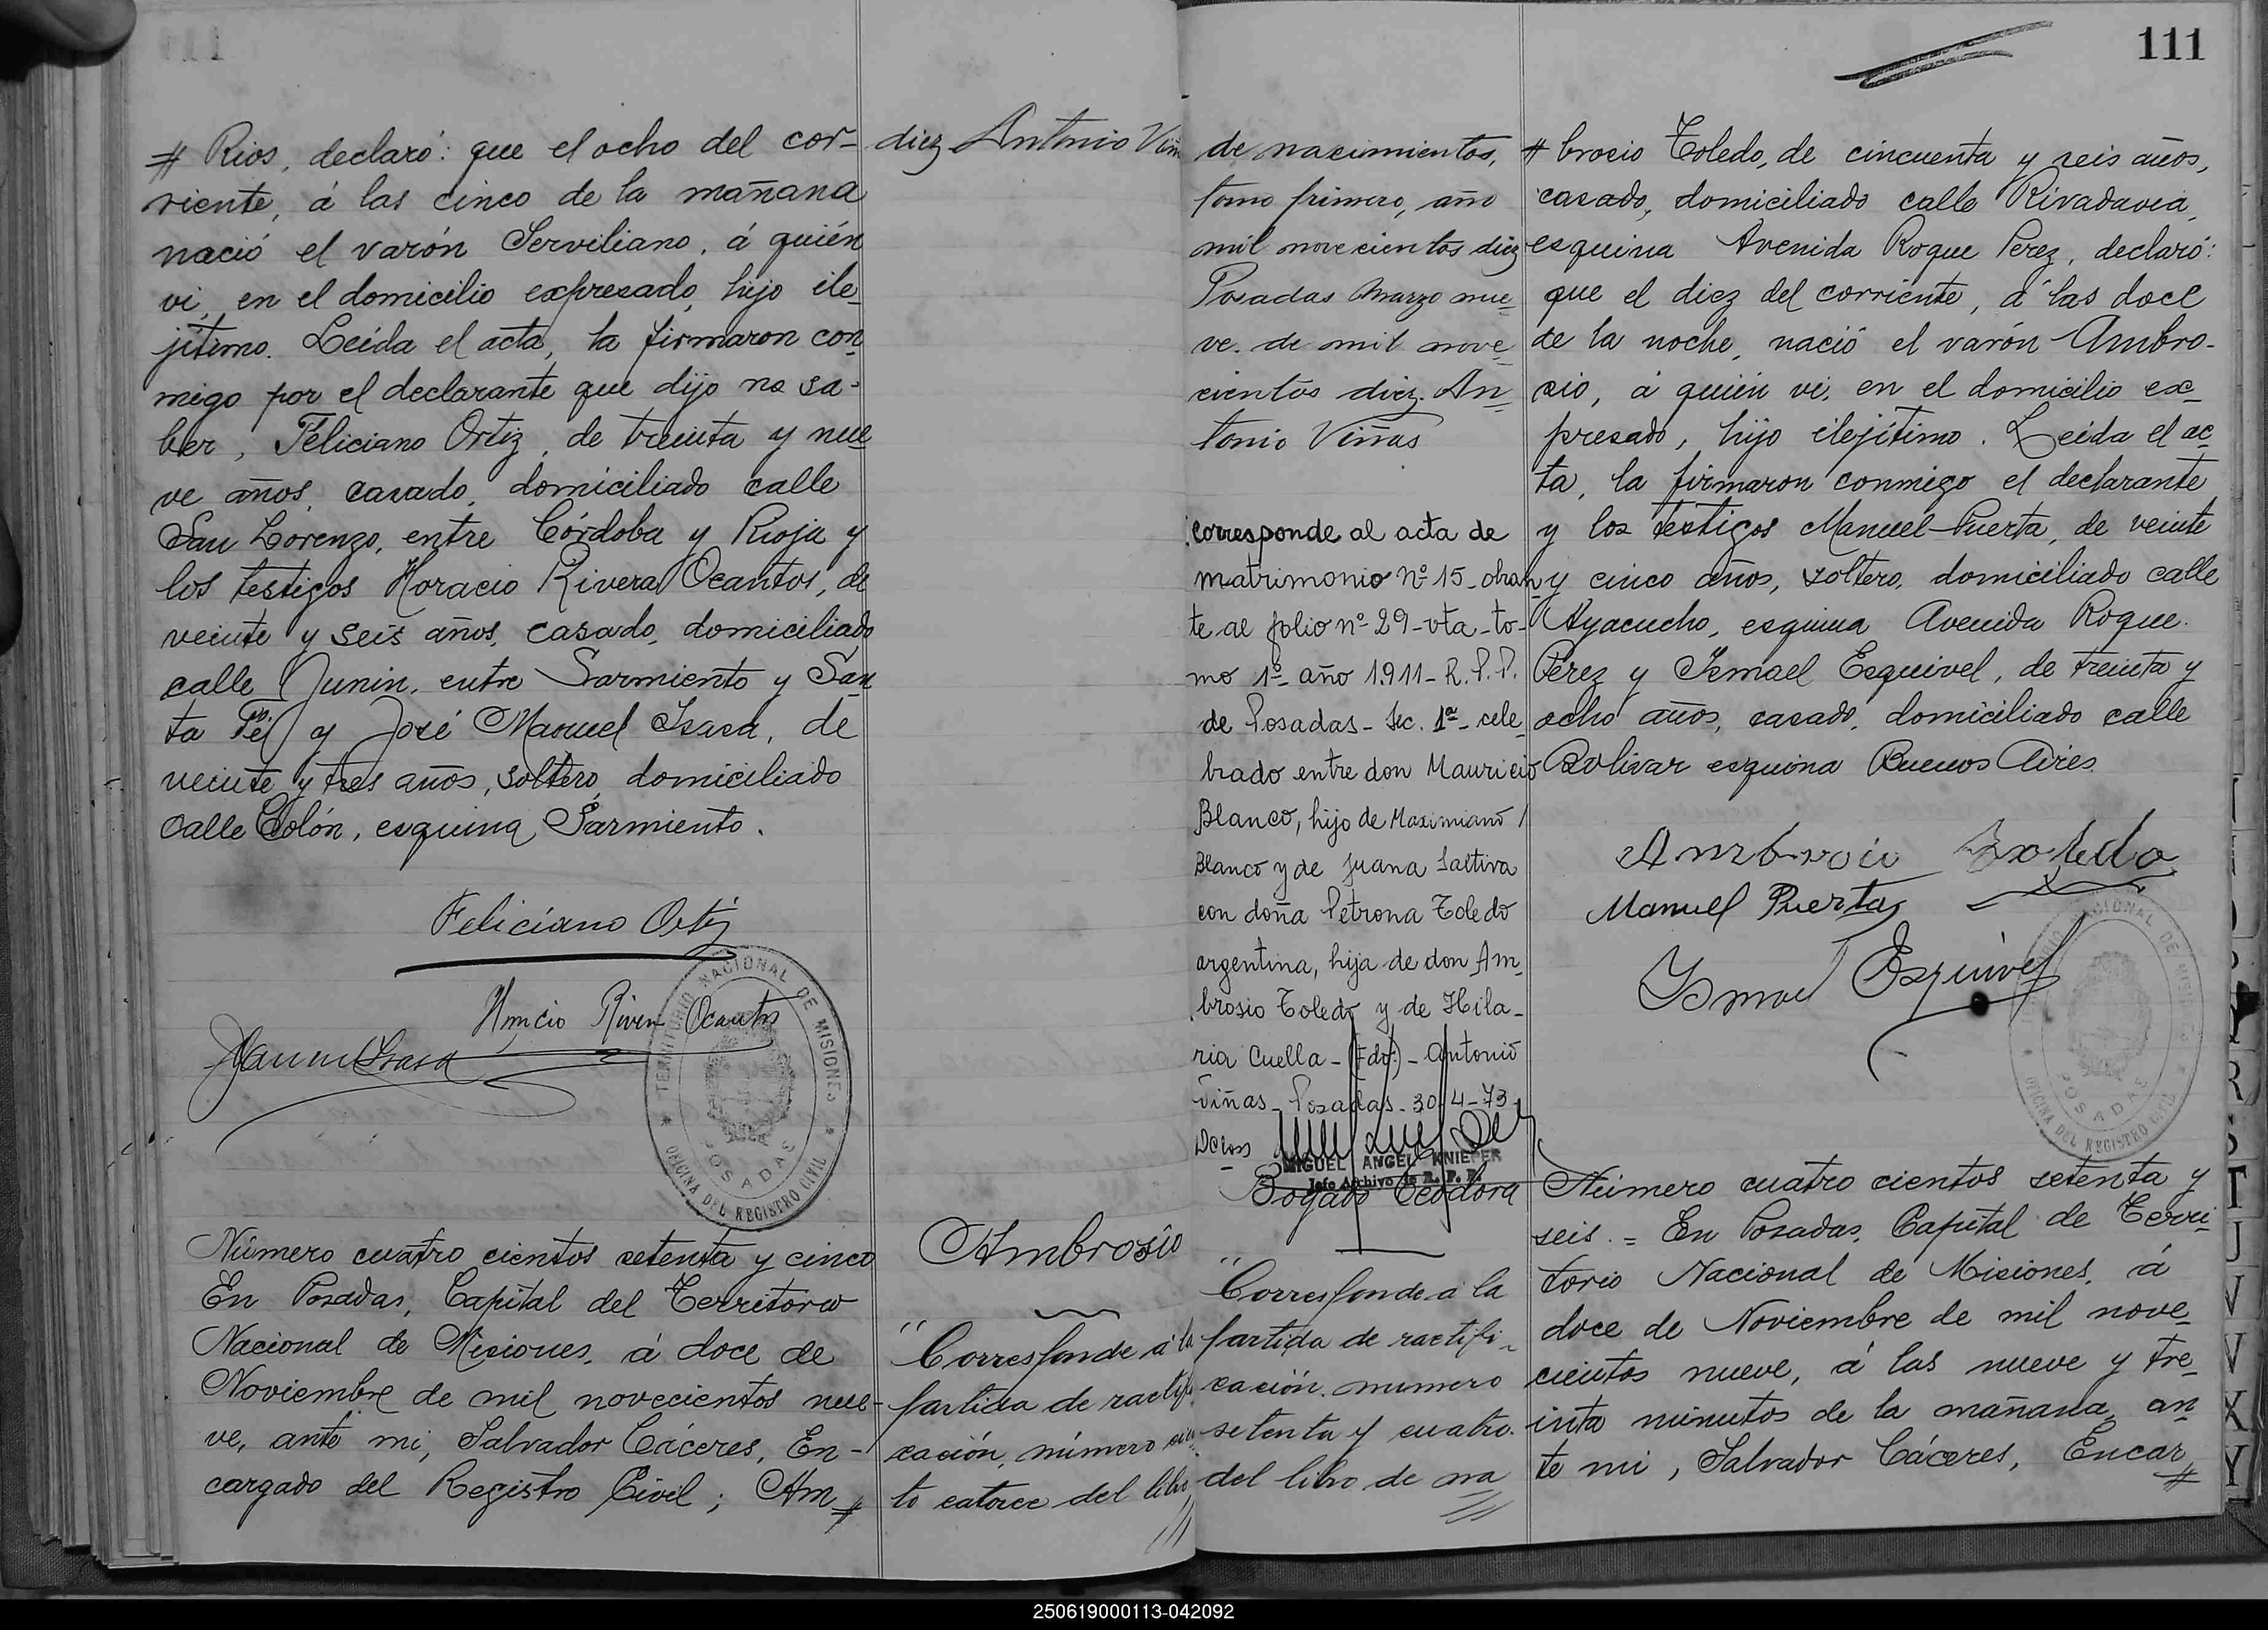 111
# Rios, declaró: que el ocho del cor-
riente, á las cinco de la mañana
nació el varón Serviliano, á quién
vi, en el domicilio expresado, hijo ile
jítimo. Leída el acta, la firmaron con
migo por el declarante que dijo no sa-
ber, Feliciano Ortiz, de treinta y nue
ve años, casado, domiciliado calle
San Lorenzo, entre Córdoba y Rioja y
los testigos Horacio Rivera Ocantos, de
veinte y seis años, casado, domiciliado
calle Junin, entre Sarmiento y San
ta Fé y José Manuel Isasa, de
veinte y tres años, soltero, domiciliado
calle Colón, esquina Sarmiento.
Feliciano Ortiz
Horacio Rivera Ocantos
TERRITORIO NACIONAL DE MISIONES
POSADAS
OFICINA DEL REGISTRO CIVIL
Número cuatro cientos setenta y cinco
En Posadas, Capital del Territorio
Nacional de Misiones, á doce de
Noviembre de mil novecientos nue-
ve, ante mi, Salvador Cáceres, En-
cargado del Registro Civil; Am #
diez Antonio Viñ
Ambrosio
"Corresponde á la
partida de ractifi
cación, número cien
to catorce del libro
de nacimientos,
tomo primero, año
mil novecientos diez
Posadas Marzo nue
ve de mil nove
cientos diez. An
tonio Viñas
Corresponde al acta de
matrimonio nº 15 - obran
te al folio nº 29 - vta - to-
mo 1º - año 1911 - R. P. P.
de Posadas - Sec. 1ª - cele
brado entre don Mauricio
Blanco, hijo de Maximiano
Blanco y de Juana Saltiva
con doña Petrona Toledo
argentina, hija de don Am
brosio Toledo y de Hila-
ria Cuella - (Fdo:) - Antonio
Viñas - Posadas - 30-4-73
MIGUEL ANGEL KNIEPER
Jefe Archivo de R. P. P.
Bogado Teodora
"Corresponde á la
partida de ractifi-
cación número
setenta y cuatro
del libro de na
111
# brosio Toledo, de cincuenta y seis años,
casado, domiciliado calle Rivadavia,
esquina Avenida Roque Perez, declaró:
que el diez del corriente, á las doce
de la noche, nació el varón Ambro-
sio, á quién vi, en el domicilio ex-
presado, hijo ilejítimo. Leída el ac
ta, la firmaron conmigo el declarante
y los testigos Manuel Puerta, de veinte
y cinco años, soltero, domiciliado calle
Ayacucho, esquina Avenida Roque
Pérez y Ismael Esquivel, de treinta y
ocho años, casado, domiciliado calle
Bolivar esquina Buenos Aires.
Ambrosio Toledo
Manuel Puertas
Ismael Esquivel
TERRITORIO NACIONAL DE MISIONES
POSADAS
OFICINA DEL REGISTRO CIVIL
Número cuatro cientos setenta y
seis. = En Posadas, Capital de Terri
torio Nacional de Misiones, á
doce de Noviembre de mil nove
cientos nueve, á las nueve y tre
inta minutos de la mañana, an
te mi, Salvador Cáceres, Encar #
R
S
T
U
V
V
X
Y
250619000113-042092